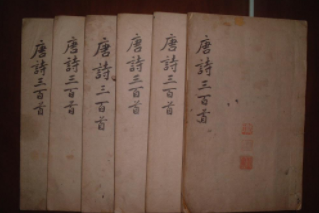 唐詩三百首
唐詩三百首
唐詩三百首
唐詩三百首
唐詩三百首
唐詩三百首